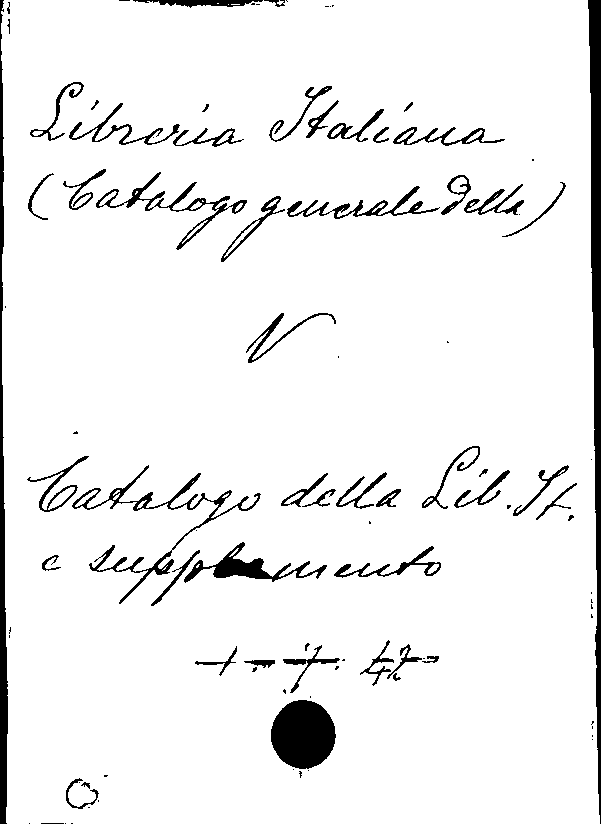 Libreria Italiana
(Catalogo generale della)
V
Catalogo della Lib. It.
e supplemento